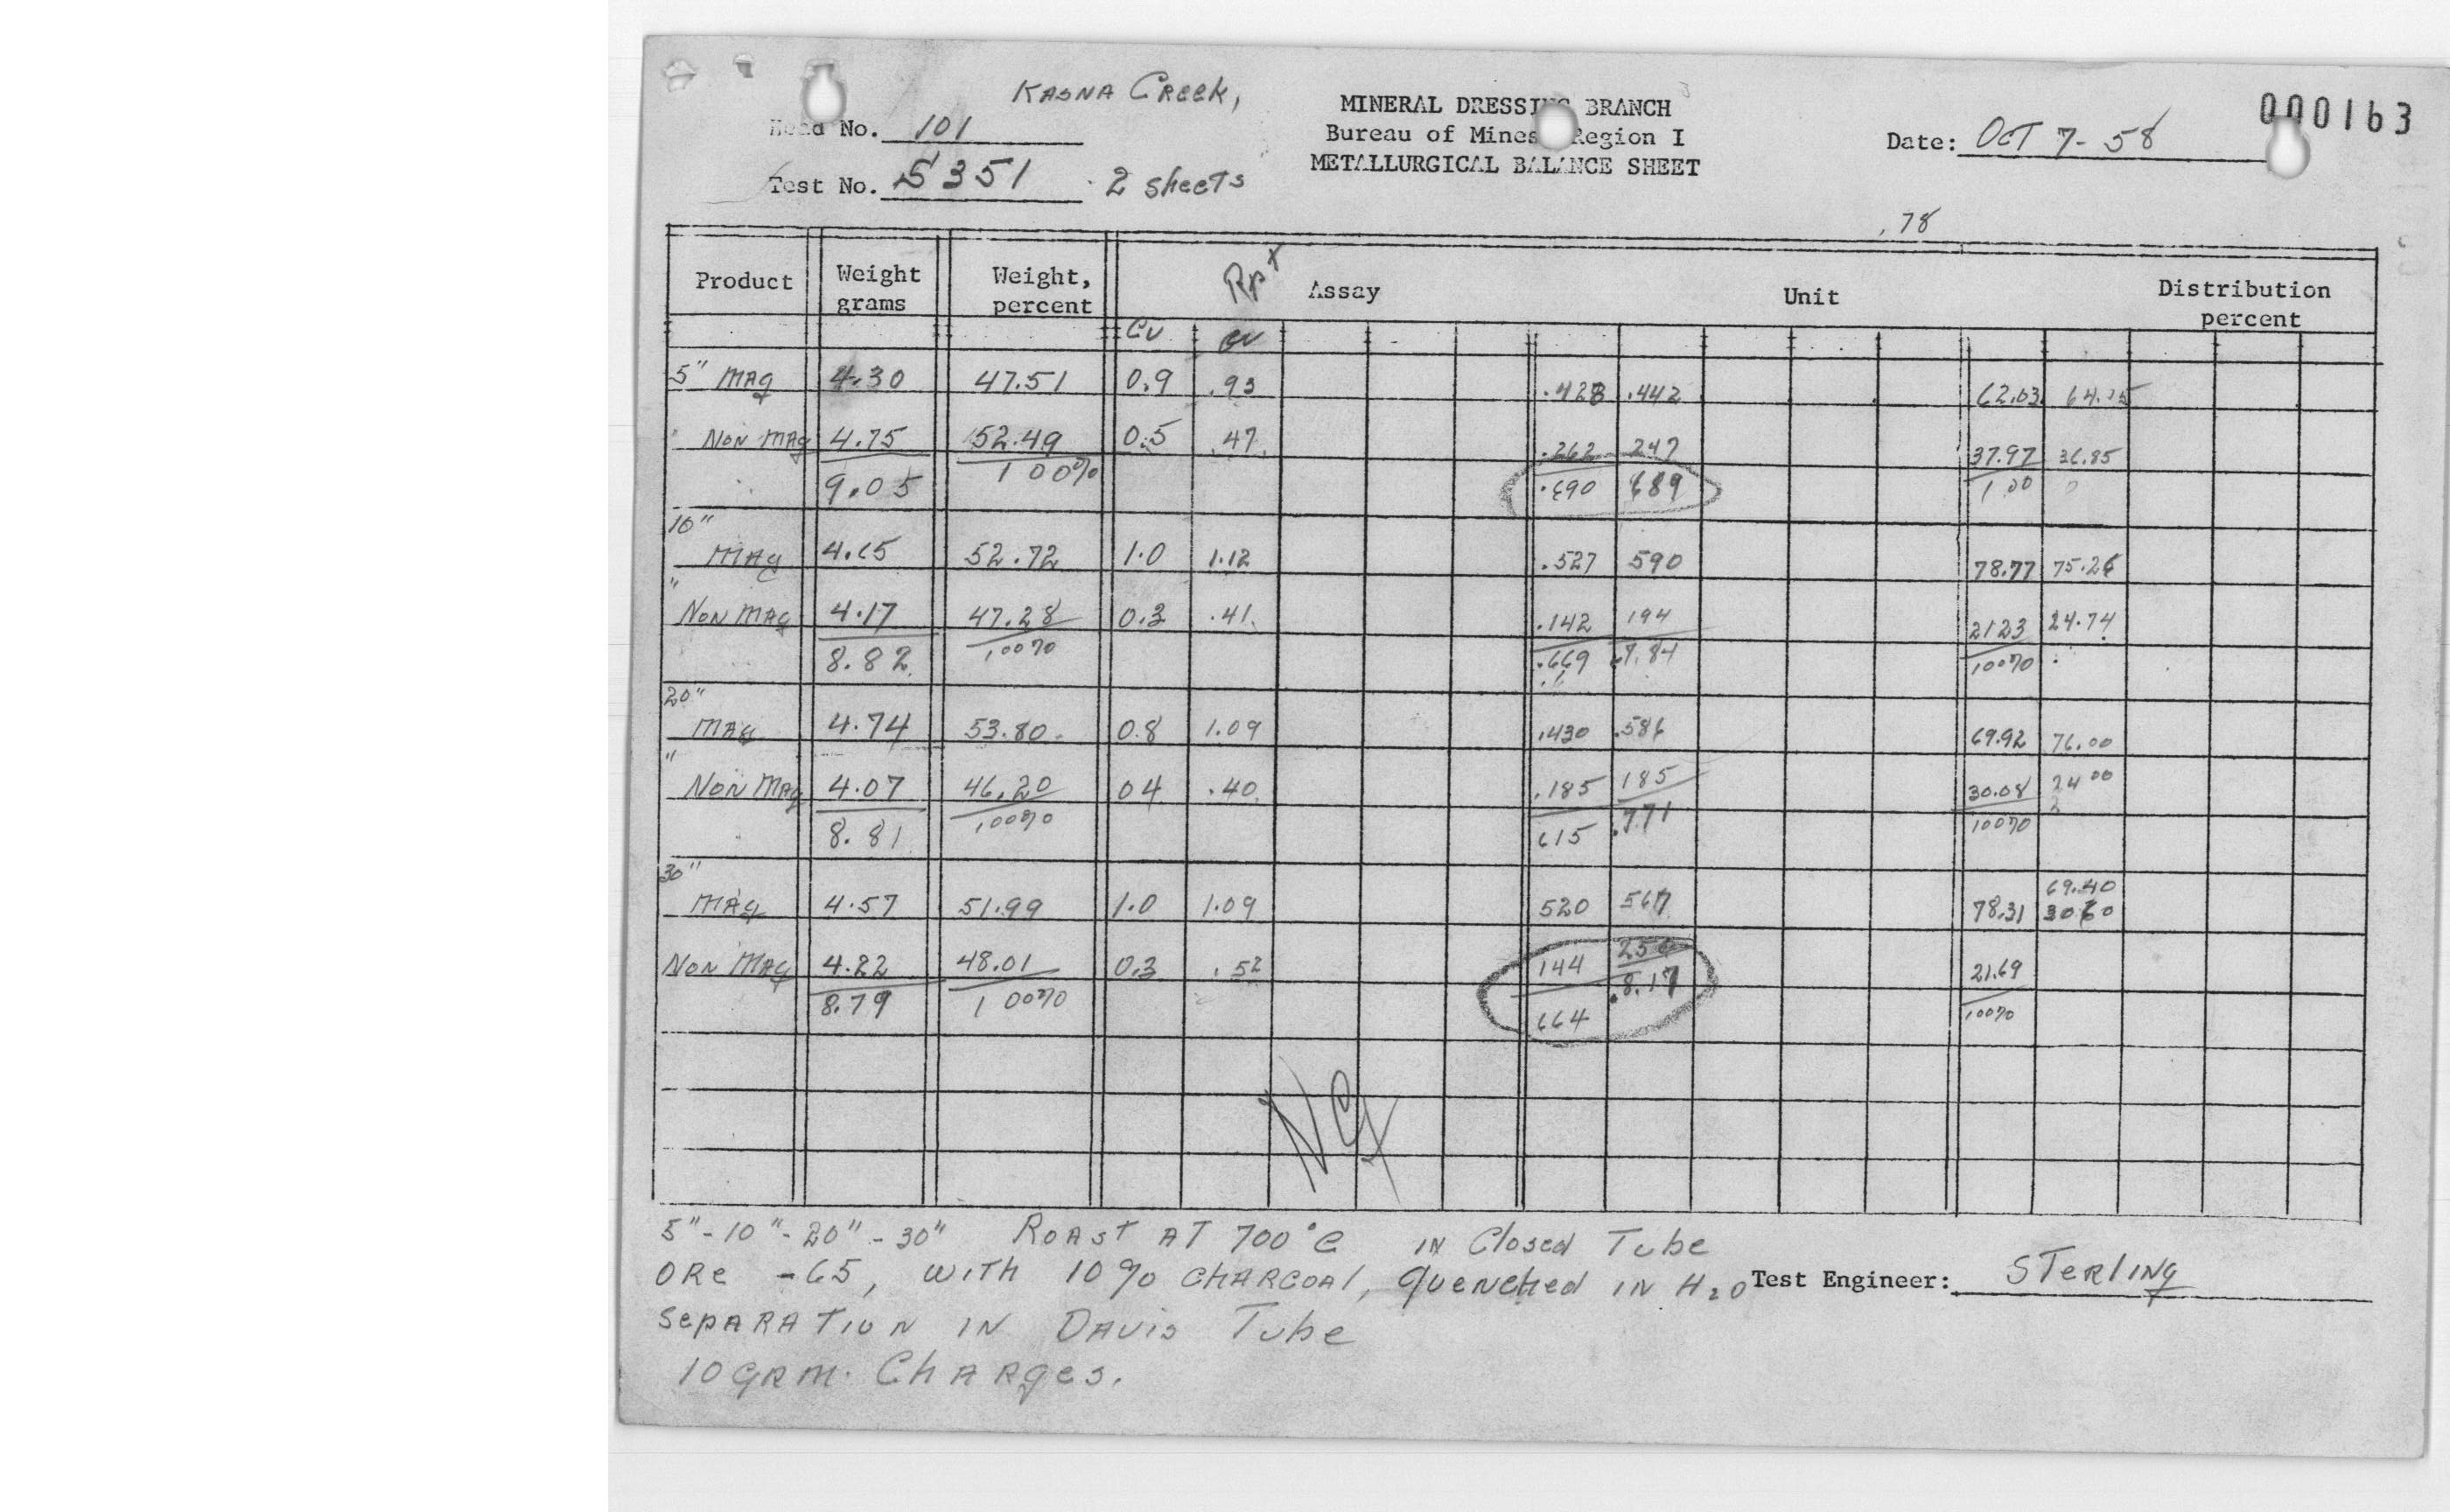 KASNA CReek,
000163
MINERAL DRESSING BRANCH
Head No. 101
Bureau of Mines Region I
Date: OCT 7-58
METALLURGICAL BALANCE SHEET
Test No. 5351 2 sheets
.78
Product Weight grams Weight, percent Rpt Assay Unit Distribution percent
Cu Cu
5" MAg 4.30 47.51 0.9 .93 .428 .442 62.03 64.15
" NON MAg 4.75 52.49 0.5 .47 .262 247 37.97 36.85
9.05 100% .690 689 1 00
10"
MAg 4.65 52.72 1.0 1.12 .527 590 78.77 75.26
"
NON MAg 4.17 47.28 0.3 .41 .142 194 2123 24.74
8.82 100% .669 .784 100%
20"
MAg 4.74 53.80 0.8 1.09 .430 .586 69.92 76.00
"
NON MAg 4.07 46.20 04 .40 .185 185 30.08 24 00
8.81 100% 615 .771 100%
30" 69.40
MAg 4.57 51.99 1.0 1.09 520 567 78.31 3060
NON MAg 4.22 48.01 0.3 .52 144 250 21.69
8.79 100% 664 .8.17 100%
NG
5"-10"-20"-30" ROAST AT 700°C IN Closed Tube
ORe -65, WITH 10% CHARCOAl, Quenched IN H2O Test Engineer: STerlINg
SepARATION IN DAVIS Tube
10 GRM. ChARges.